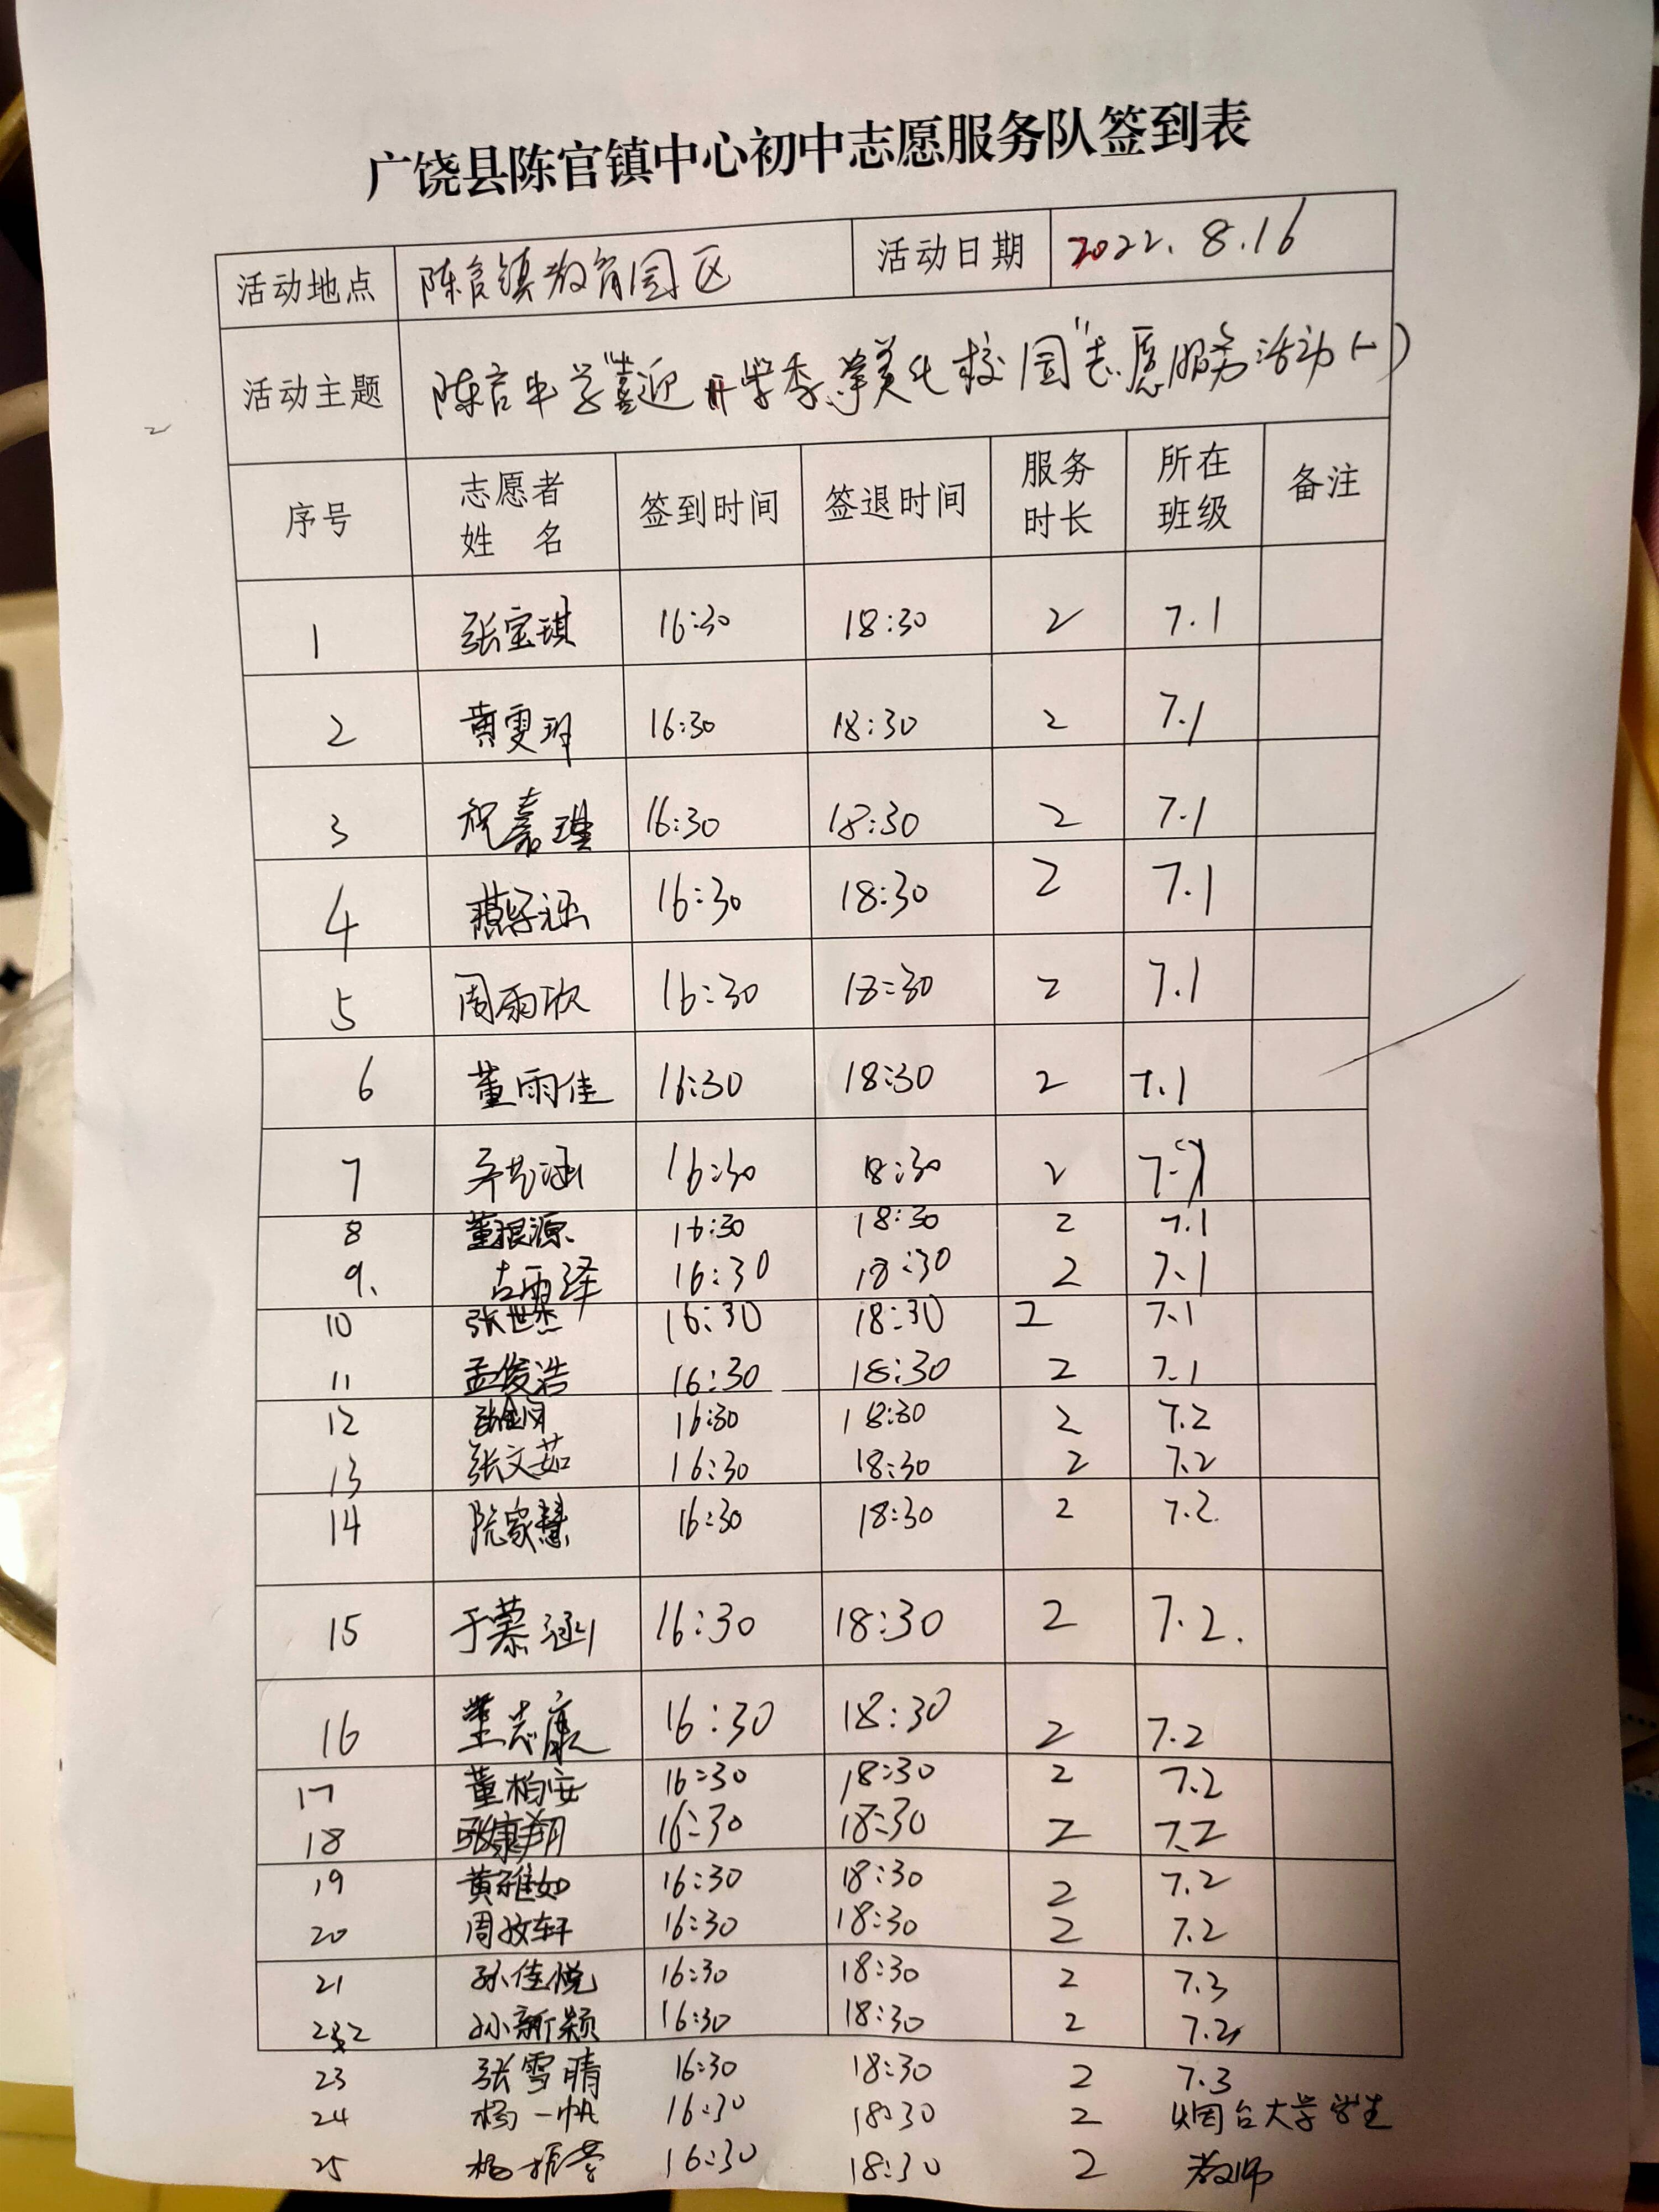 广饶县陈官镇中心初中志愿服务队签到表
活动地点 陈官镇教育园区 活动日期 2022.8.16
活动主题 陈官中学“喜迎开学季,美化校园”志愿服务活动(一)
序号 志愿者姓名 签到时间 签退时间 服务时长 所在班级 备注
1 张宝琪 16:30 18:30 2 7.1
2 黄雯 16:30 18:30 2 7.1
3 祝嘉琪 16:30 18:30 2 7.1
4 燕子涵 16:30 18:30 2 7.1
5 周雨欣 16:30 18:30 2 7.1
6 董雨佳 16:30 18:30 2 7.1
7 涵 16:30 18:30 2 7.1
8 董根源 16:30 18:30 2 7.1
9. 古雨泽 16:30 18:30 2 7.1
10 张世杰 16:30 18:30 2 7.1
11 孟俊浩 16:30 18:30 2 7.1
12 张 16:30 18:30 2 7.2
13 张文茹 16:30 18:30 2 7.2
14 阮家慧 16:30 18:30 2 7.2.
15 于慕涵 16:30 18:30 2 7.2.
16 董志康 16:30 18:30 2 7.2
17 董柏安 16:30 18:30 2 7.2
18 张康翔 16:30 18:30 2 7.2
19 黄雅如 16:30 18:30 2 7.2
20 周轩 16:30 18:30 2 7.2
21 孙佳悦 16:30 18:30 2 7.3
22 孙新颖 16:30 18:30 2 7.2
23 张雪晴 16:30 18:30 2 7.3
24 杨一帆 16:30 18:30 2 烟台大学学生
25 杨振 16:30 18:30 2 教师